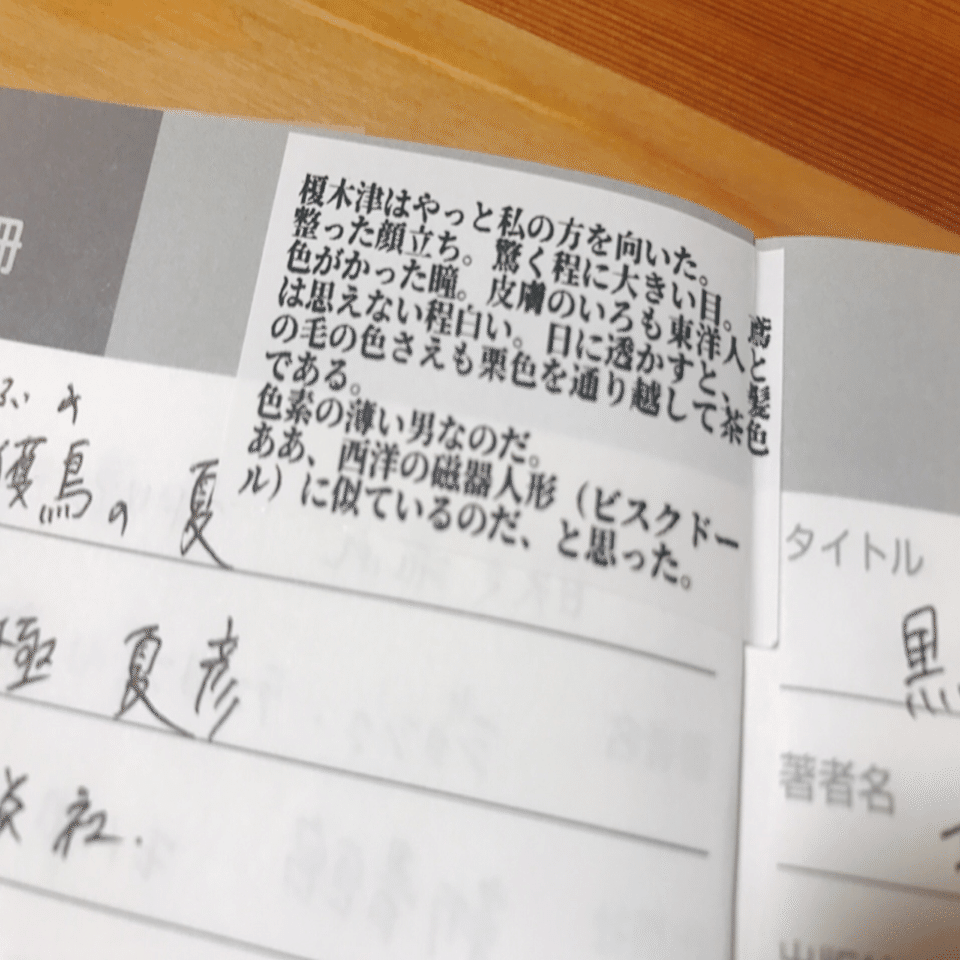 冊
榎木津はやっと私の方を向いた。
整った顔立ち。驚く程に大きい目。鳶
色がかった瞳。皮膚のいろも東洋人と
は思えない程白い。日に透かすと、髪
の毛の色さえも栗色を通り越して茶色
である。
色素の薄い男なのだ。
ああ、西洋の磁器人形（ビスクドー
ル）に似ているのだ、と思った。
鳥の夏
極 夏彦
社.
タイトル
黒
著者名